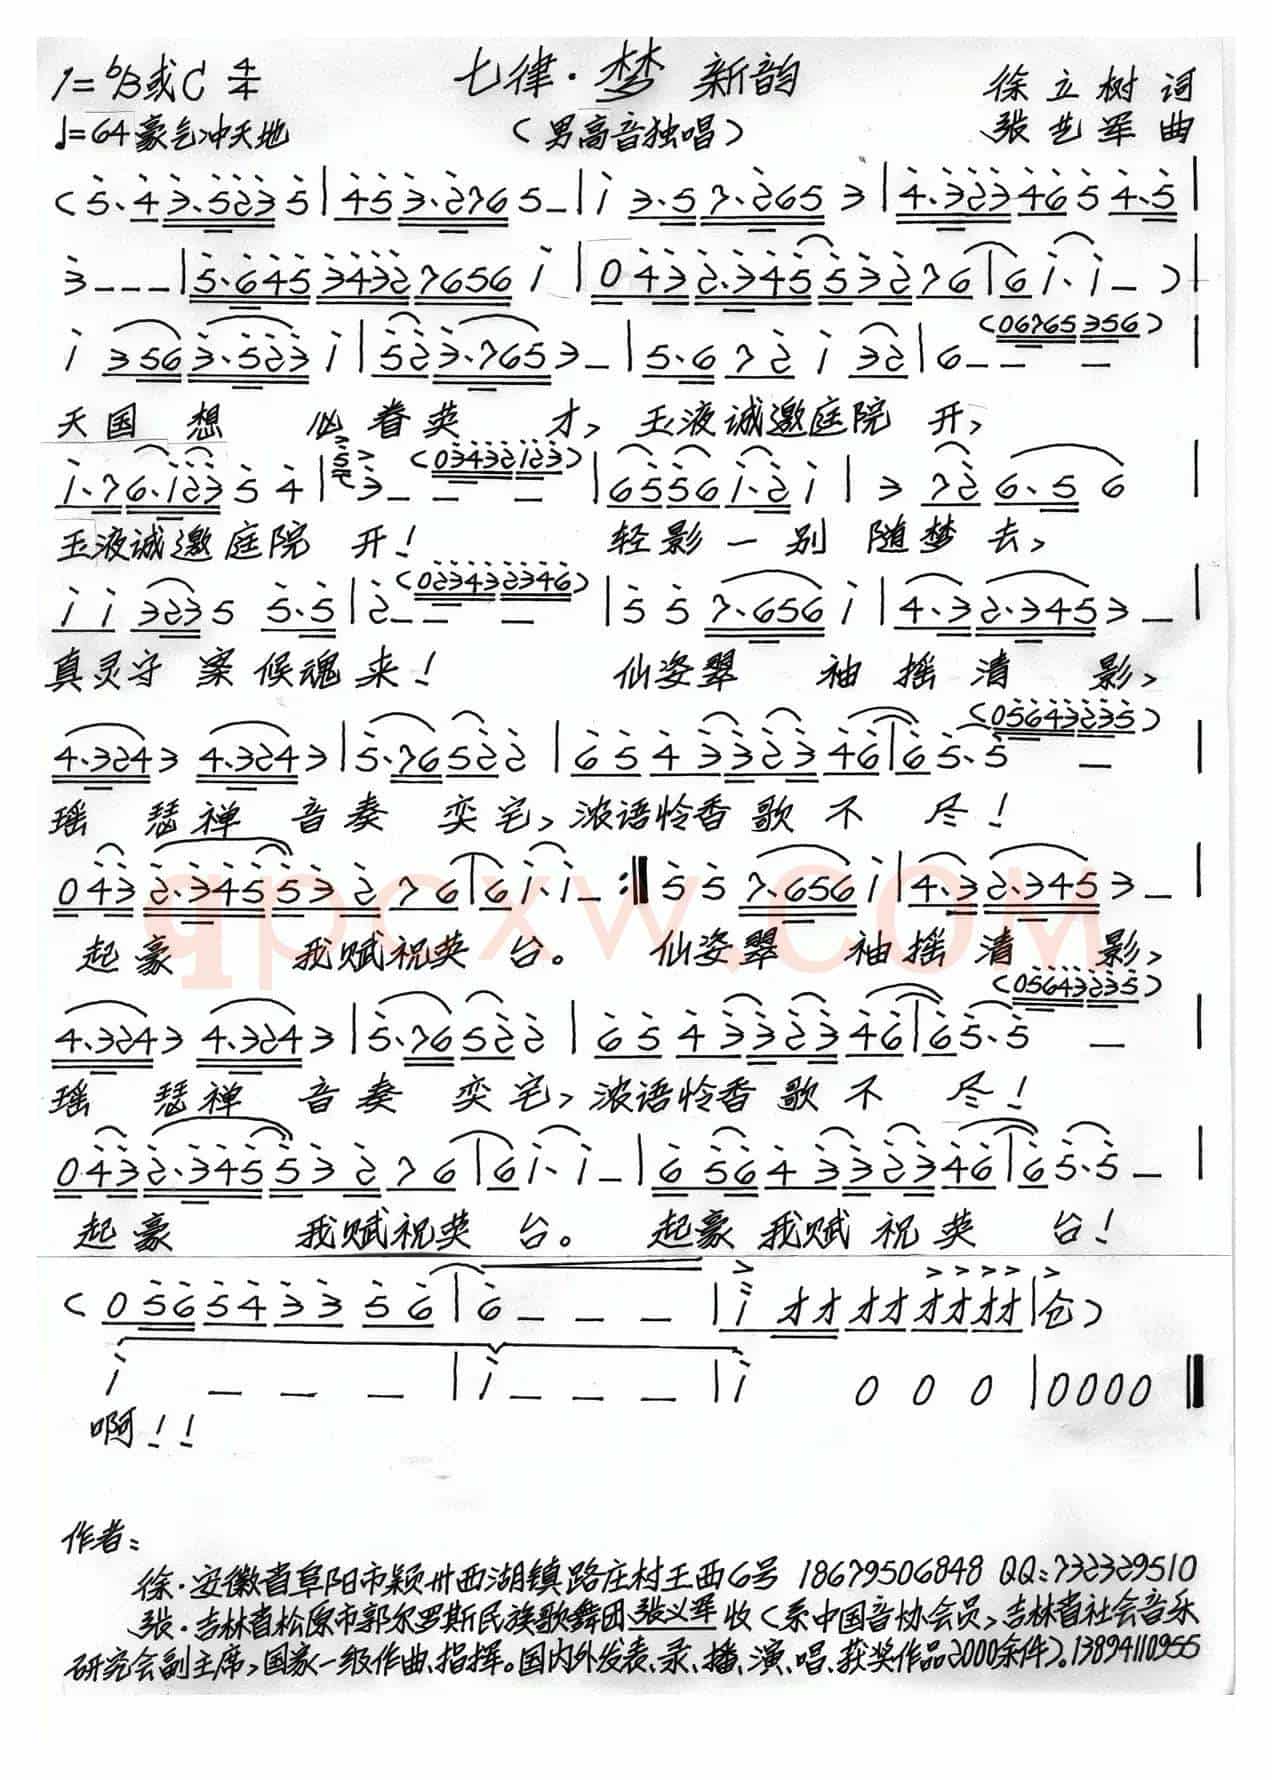 七律·梦 新韵
1=♭B或C 4/4
徐立树 词
♩=64 豪气冲天地
(男高音独唱)
张艺军 曲
(5·43·5235|453·2765-|i 3·57·2653|4·3234654·5|
3---|5·64534327656i|0432·34553276|6i·i-)
i3563·523i|523·7653-|5·672i32|6-- (06765356) -|
天国想必眷英才,玉液诚邀庭院开,
i·76·i2354|3-- (03432123) -|6556i·2i|3726·56|
玉液诚邀庭院开!轻影一别随梦去,
ii32355·5|2-- (023432346) -|557·656i|4·32·3453-|
真灵守案候魂来!仙姿翠袖摇清影,
4·3243 4·3243|5·76522|654332346|65·5 (05643235) -|
瑶瑟禅音奏奕宅,浓语怜香歌不尽!
0432·34553276|6i·i- :‖557·656i|4·32·3453-|
起豪我赋祝英台。仙姿翠袖摇清影,
4·3243 4·3243|5·76522|654332346|65·5 (05643235) -|
瑶瑟禅音奏奕宅,浓语怜香歌不尽!
0432·34553276|6i·i-|6564332346|65·5-|
起豪我赋祝英台。起豪我赋祝英台!
(056543356|6---|i 才才才才才才才才|仓)
i---|i---|i000|0000‖
啊!!
作者:
徐·安徽省阜阳市颍州西湖镇路庄村王西6号 18679506848 QQ:732329510
张·吉林省松原市郭尔罗斯民族歌舞团张义军收(系中国音协会员,吉林省社会音乐
研究会副主席,国家一级作曲、指挥。国内外发表、录、播、演、唱、获奖作品2000余件)。13894110955
qpcxw.com